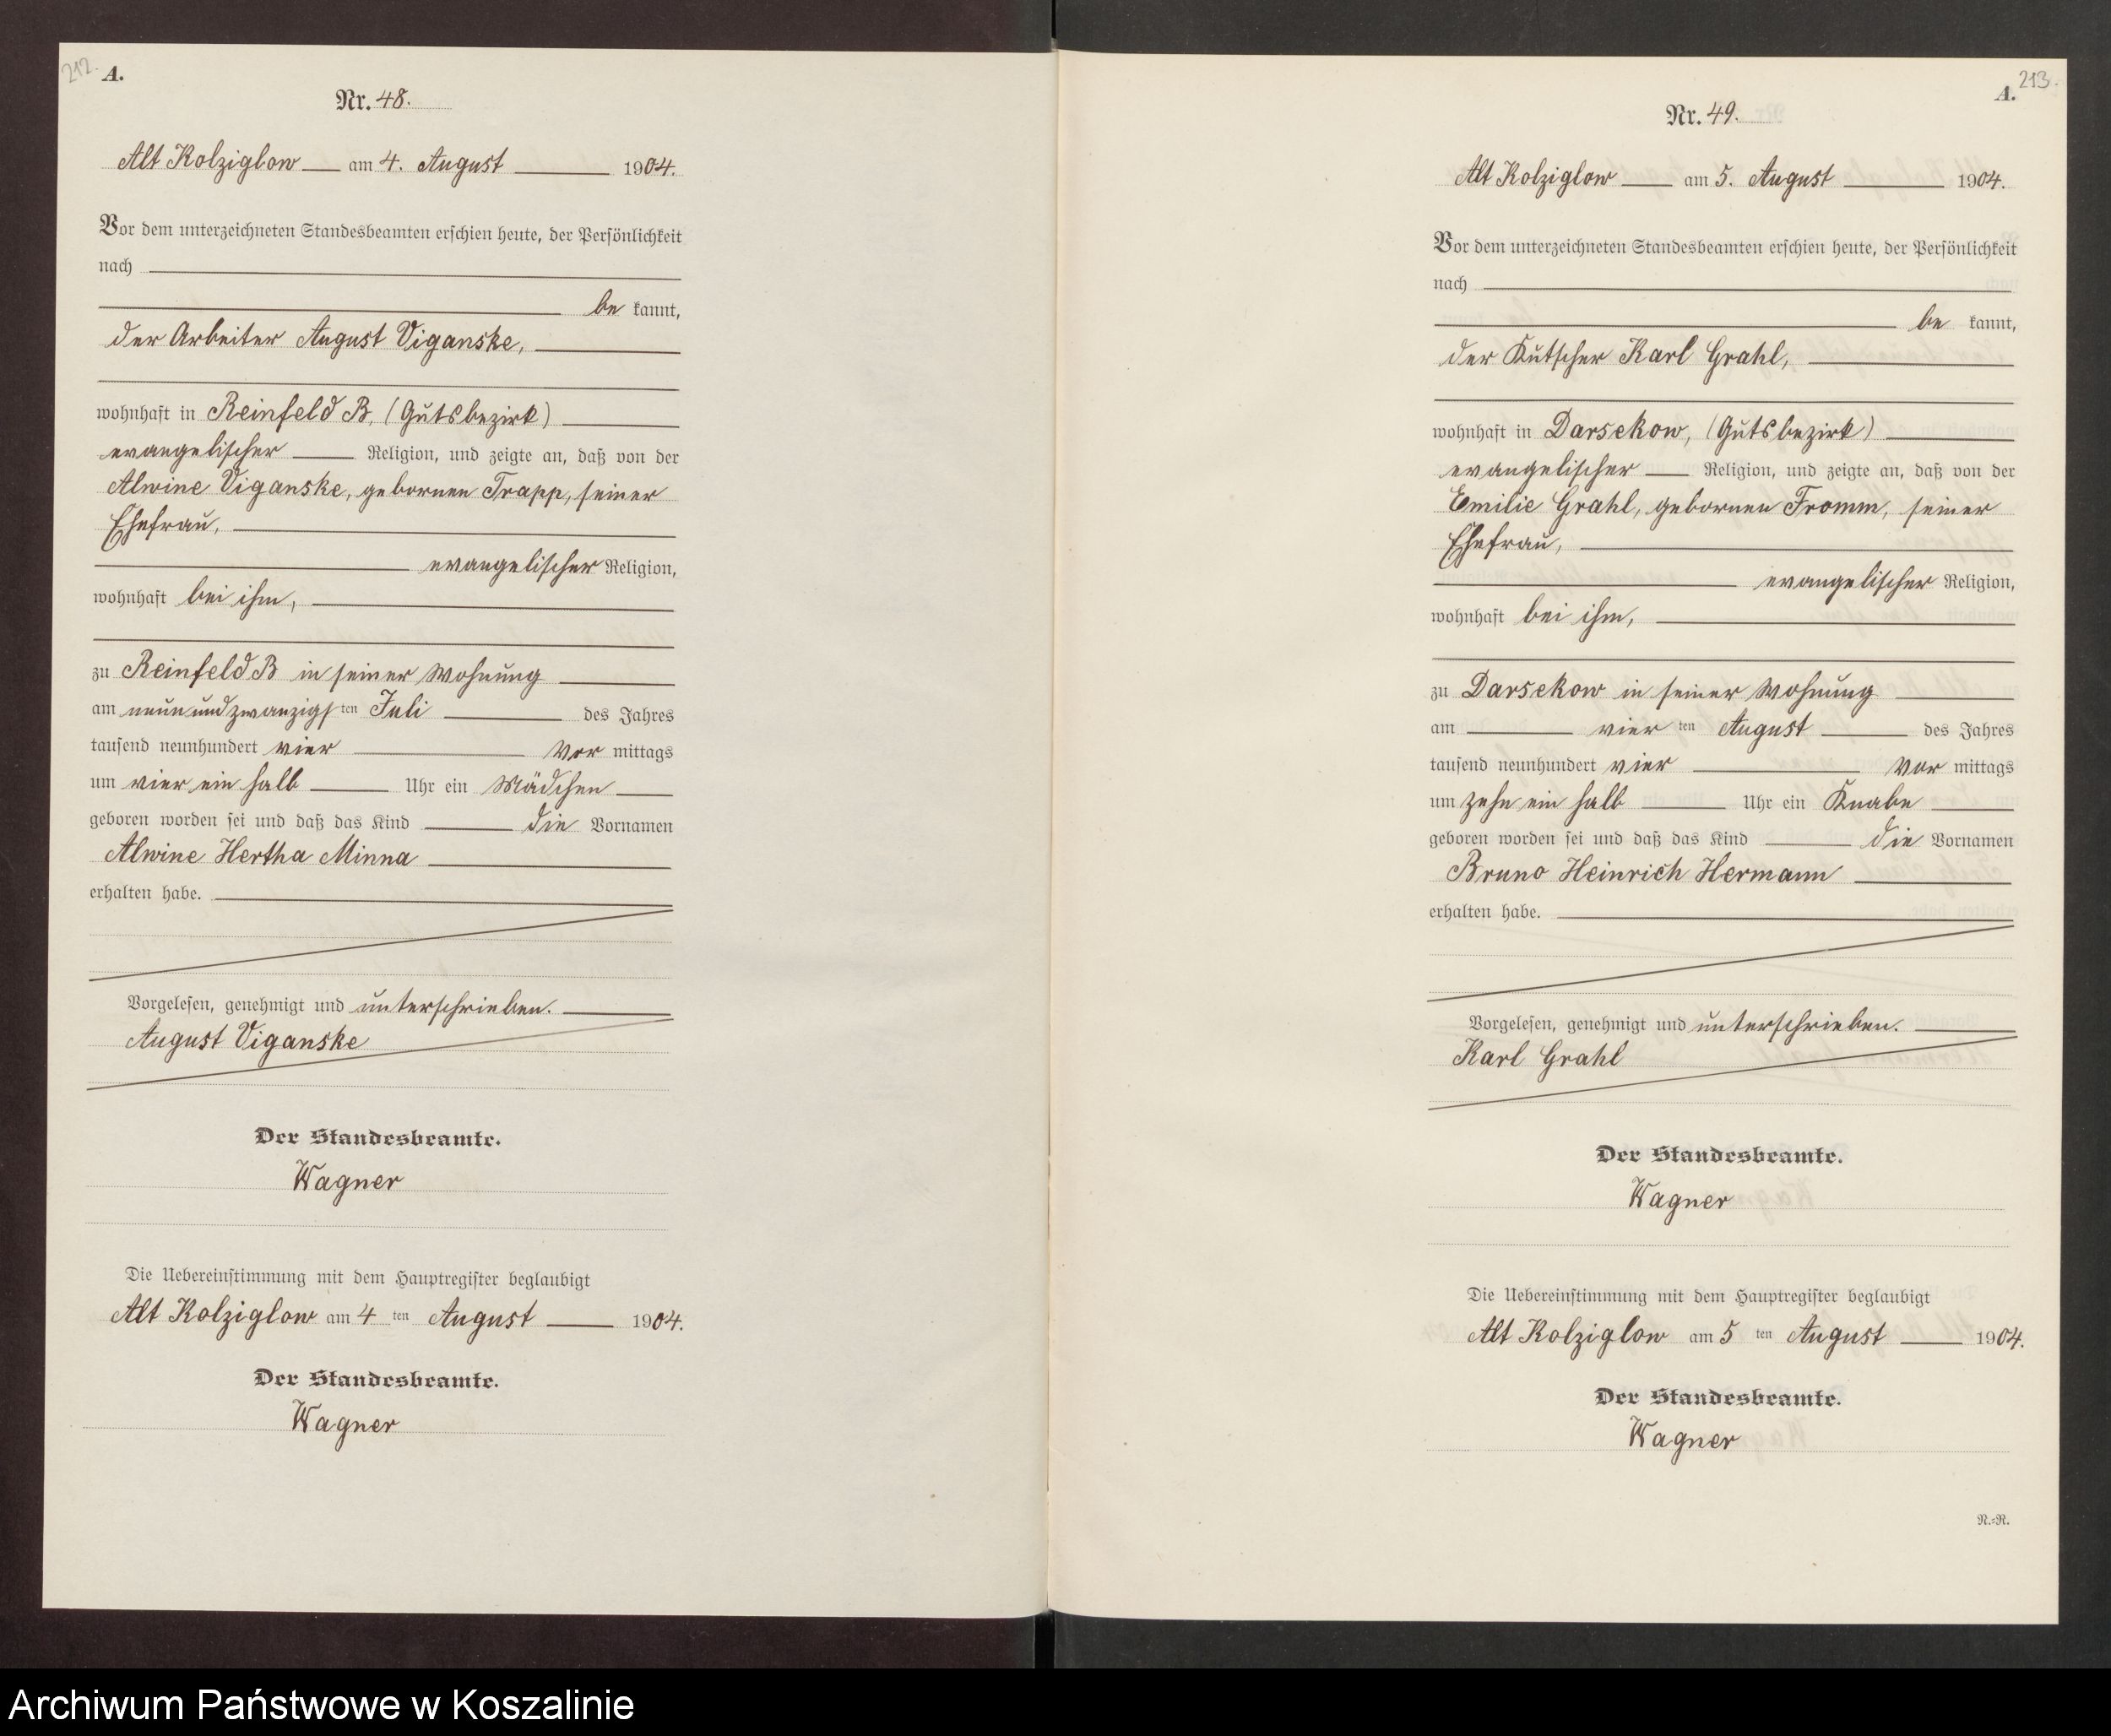 212.
A.
Nr. 48.
Alt Kolziglow am 4. August 1904.
Vor dem unterzeichneten Standesbeamten erschien heute, der Persönlichkeit
nach
be kannt,
der Arbeiter August Viganske,
wohnhaft in Reinfeld B, (Gutsbezirk)
evangelischer Religion, und zeigte an, daß von der
Alwine Viganske, gebornen Trapp, seiner
Ehefrau,
evangelischer Religion,
wohnhaft bei ihm,
zu Reinfeld B in seiner Wohnung
am neunundzwanzigsten Juli des Jahres
tausend neunhundert vier Vor mittags
um vier ein halb Uhr ein Mädchen
geboren worden sei und daß das Kind die Vornamen
Alwine Hertha Minna
erhalten habe.
Vorgelesen, genehmigt und unterschrieben.
August Viganske
Der Standesbeamte.
Wagner
Die Uebereinstimmung mit dem Hauptregister beglaubigt
Alt Kolziglow am 4 ten August 1904.
Der Standesbeamte.
Wagner
213.
A.
Nr. 49.
Alt Kolziglow am 5. August 1904.
Vor dem unterzeichneten Standesbeamten erschien heute, der Persönlichkeit
nach
be kannt,
der Kutscher Karl Grahl,
wohnhaft in Darsekow, (Gutsbezirk)
evangelischer Religion, und zeigte an, daß von der
Emilie Grahl, gebornen Fromm, seiner
Ehefrau,
evangelischer Religion,
wohnhaft bei ihm,
zu Darsekow in seiner Wohnung
am vier ten August des Jahres
tausend neunhundert vier Vor mittags
um zehn ein halb Uhr ein Knabe
geboren worden sei und daß das Kind die Vornamen
Bruno Heinrich Hermann
erhalten habe.
Vorgelesen, genehmigt und unterschrieben.
Karl Grahl
Der Standesbeamte.
Wagner
Die Uebereinstimmung mit dem Hauptregister beglaubigt
Alt Kolziglow am 5 ten August 1904.
Der Standesbeamte.
Wagner
N.=R.
Archiwum Państwowe w Koszalinie